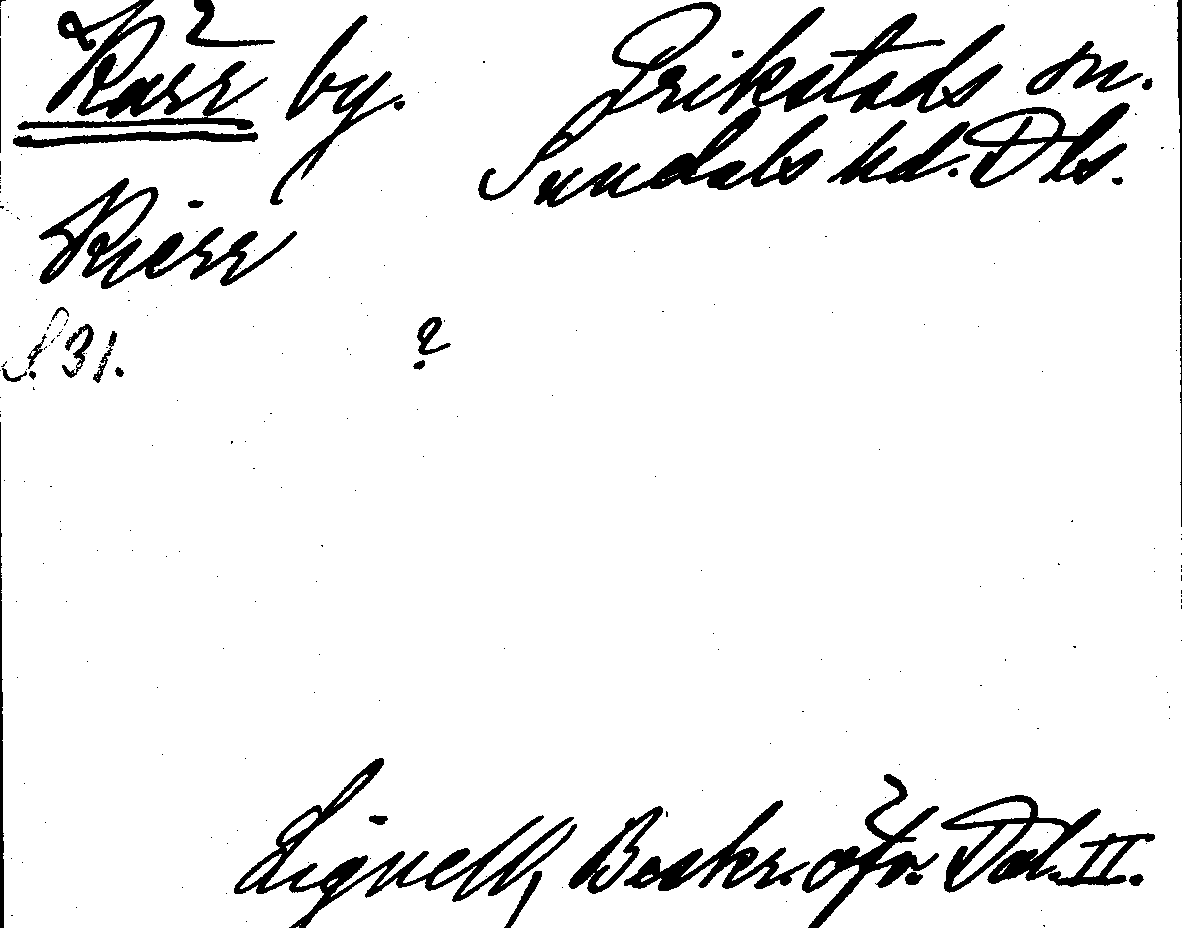 Kärr by. Erikstads sn.
Sundals hd. Dls.
Kierr
S. 31. ?
Lignell, Beskr. öfv. Dal. II.